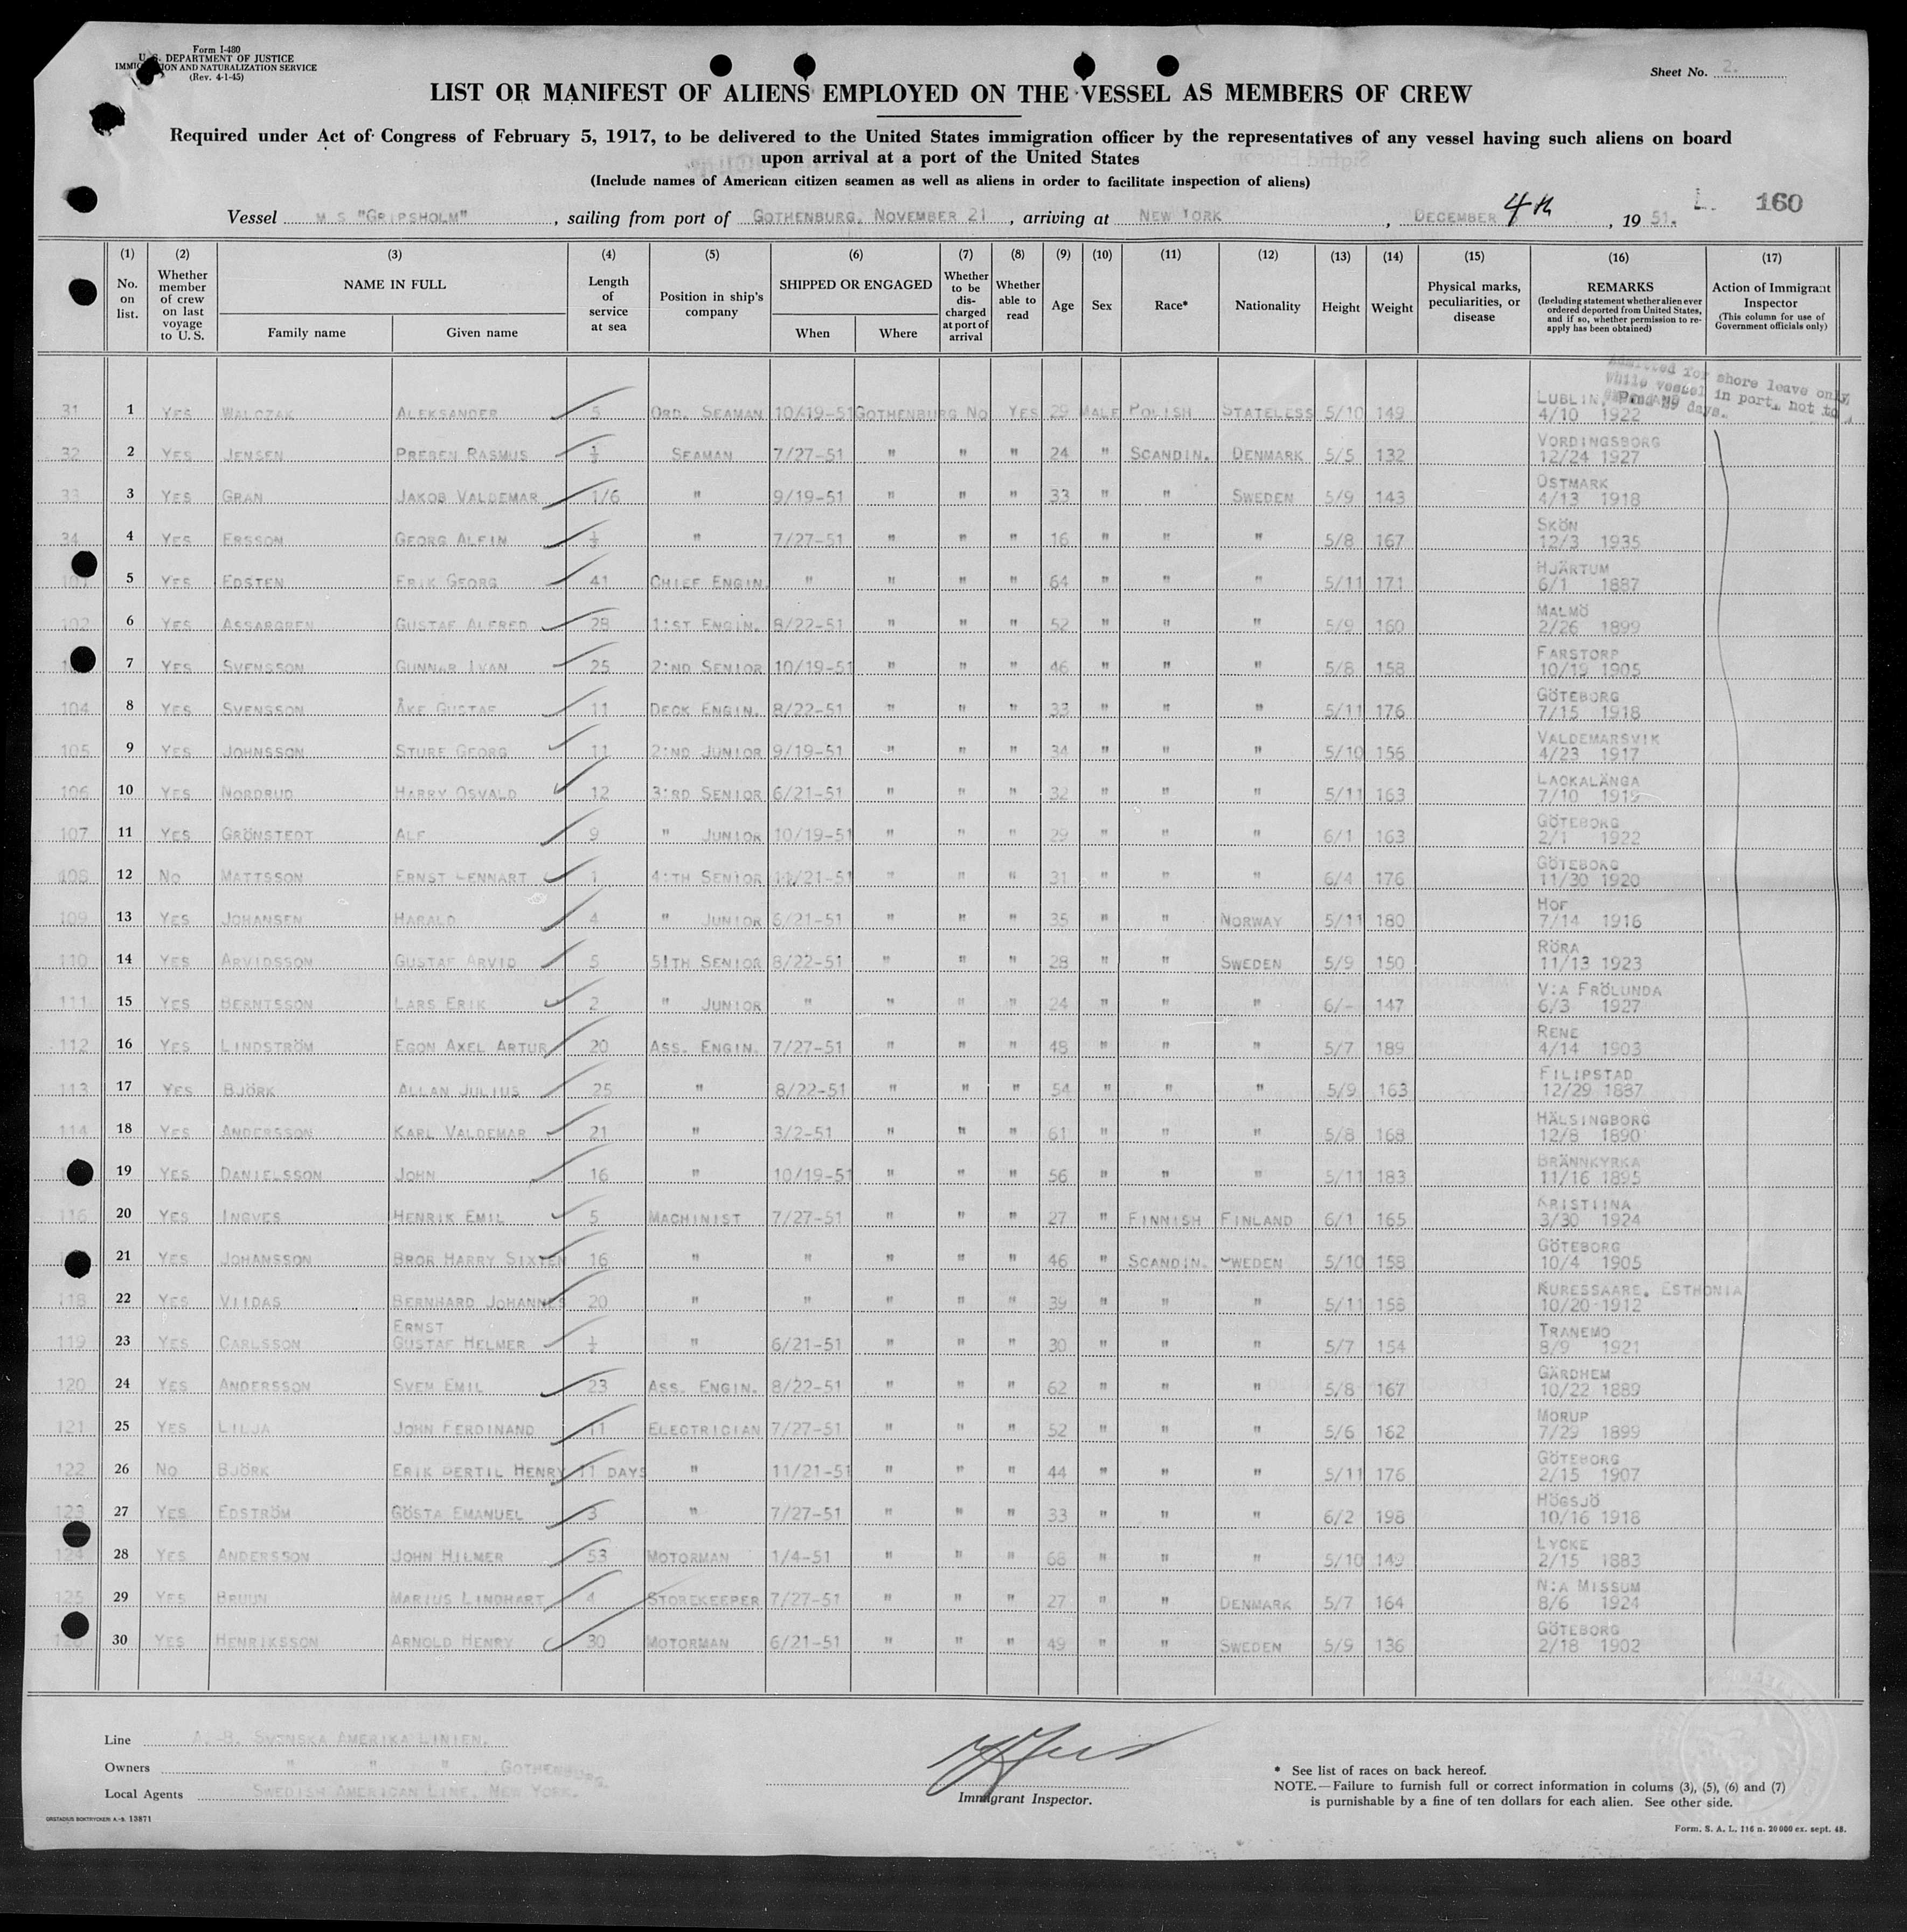 Form I-480
U. S. DEPARTMENT OF JUSTICE
IMMIGRATION AND NATURALIZATION SERVICE
(Rev. 4-1-45)
Sheet No. 2.
LIST OR MANIFEST OF ALIENS EMPLOYED ON THE VESSEL AS MEMBERS OF CREW
Required under Act of Congress of February 5, 1917, to be delivered to the United States immigration officer by the representatives of any vessel having such aliens on board
upon arrival at a port of the United States
(Include names of American citizen seamen as well as aliens in order to facilitate inspection of aliens)
L. 160
Vessel M S "GRIPSHOLM", sailing from port of GOTHENBURG, NOVEMBER 21, arriving at NEW YORK, DECEMBER 4th, 1951.
(1) No. on list. (2) Whether member of crew on last voyage to U. S. (3) NAME IN FULL Family name Given name (4) Length of service at sea (5) Position in ship's company (6) SHIPPED OR ENGAGED When Where (7) Whether to be discharged at port of arrival (8) Whether able to read (9) Age (10) Sex (11) Race* (12) Nationality (13) Height (14) Weight (15) Physical marks, peculiarities, or disease (16) REMARKS (Including statement whether alien ever ordered deported from United States, and if so, whether permission to re-apply has been obtained) (17) Action of Immigrant Inspector (This column for use of Government officials only)
Admitted for shore leave only
while vessel in port, not to
exceed 29 days.
31 1 YES WALCZAK ALEKSANDER 5 ORD. SEAMAN 10/19-51 GOTHENBURG NO YES 29 MALE POLISH STATELESS 5/10 149 LUBLIN, POLAND 4/10 1922
32 2 YES JENSEN PREBEN RASMUS ½ SEAMAN 7/27-51 " " " 24 " SCANDIN. DENMARK 5/5 132 VORDINGSBORG 12/24 1927
33 3 YES GRAN JAKOB VALDEMAR 1/6 " 9/19-51 " " " 33 " " SWEDEN 5/9 143 ÖSTMARK 4/13 1918
34 4 YES ERSSON GEORG ALFIN ½ " 7/27-51 " " " 16 " " " 5/8 167 SKÖN 12/3 1935
101 5 YES EDSTEN ERIK GEORG 41 CHIEF ENGIN. " " " " 64 " " " 5/11 171 HJÄRTUM 6/1 1887
102 6 YES ASSARGREN GUSTAF ALFRED 28 1:ST ENGIN. 8/22-51 " " " 52 " " " 5/9 160 MALMÖ 2/26 1899
7 YES SVENSSON GUNNAR IVAN 25 2:ND SENIOR 10/19-51 " " " 46 " " " 5/8 158 FARSTORP 10/19 1905
104 8 YES SVENSSON ÅKE GUSTAF 11 DECK ENGIN. 8/22-51 " " " 33 " " " 5/11 176 GÖTEBORG 7/15 1918
105 9 YES JOHNSSON STURE GEORG 11 2:ND JUNIOR 9/19-51 " " " 34 " " " 5/10 156 VALDEMARSVIK 4/23 1917
106 10 YES NORDRUD HARRY OSVALD 12 3:RD SENIOR 6/21-51 " " " 32 " " " 5/11 163 LACKALÄNGA 7/10 1919
107 11 YES GRÖNSTEDT ALF 9 " JUNIOR 10/19-51 " " " 29 " " " 6/1 163 GÖTEBORG 2/1 1922
108 12 NO MATTSSON ERNST LENNART 1 4:TH SENIOR 11/21-51 " " " 31 " " " 6/4 176 GÖTEBORG 11/30 1920
109 13 YES JOHANSEN HARALD 4 " JUNIOR 6/21-51 " " " 35 " " NORWAY 5/11 180 HOF 7/14 1916
110 14 YES ARVIDSSON GUSTAF ARVID 5 5:TH SENIOR 8/22-51 " " " 28 " " SWEDEN 5/9 150 RÖRA 11/13 1923
111 15 YES BERNTSSON LARS ERIK 2 " JUNIOR " " " " 24 " " " 6/- 147 V:A FRÖLUNDA 6/3 1927
112 16 YES LINDSTRÖM EGON AXEL ARTUR 20 ASS. ENGIN. 7/27-51 " " " 48 " " " 5/7 189 RENE 4/14 1903
113 17 YES BJÖRK ALLAN JULIUS 25 " 8/22-51 " " " 54 " " " 5/9 163 FILIPSTAD 12/29 1887
114 18 YES ANDERSSON KARL VALDEMAR 21 " 3/2-51 " " " 61 " " " 5/8 168 HÄLSINGBORG 12/8 1890
19 YES DANIELSSON JOHN 16 " 10/19-51 " " " 56 " " " 5/11 183 BRÄNNKYRKA 11/16 1895
116 20 YES INGVES HENRIK EMIL 5 MACHINIST 7/27-51 " " " 27 " FINNISH FINLAND 6/1 165 KRISTIINA 3/30 1924
21 YES JOHANSSON BROR HARRY SIXTEN 16 " " " " " 46 " SCANDIN. SWEDEN 5/10 158 GÖTEBORG 10/4 1905
118 22 YES VIIDAS BERNHARD JOHANNES 20 " " " " " 39 " " " 5/11 158 KURESSAARE, ESTHONIA 10/20-1912
119 23 YES CARLSSON ERNST GUSTAF HELMER ½ " 6/21-51 " " " 30 " " " 5/7 154 TRANEMO 8/9 1921
120 24 YES ANDERSSON SVEN EMIL 23 ASS. ENGIN. 8/22-51 " " " 62 " " " 5/8 167 GÄRDHEM 10/22 1889
121 25 YES LILJA JOHN FERDINAND 11 ELECTRICIAN 7/27-51 " " " 52 " " " 5/6 162 MORUP 7/29 1899
122 26 NO BJÖRK ERIK BERTIL HENRY 11 DAYS " 11/21-51 " " " 44 " " " 5/11 176 GÖTEBORG 2/15 1907
123 27 YES EDSTRÖM GÖSTA EMANUEL 3 " 7/27-51 " " " 33 " " " 6/2 198 HÖGSJÖ 10/16 1918
124 28 YES ANDERSSON JOHN HILMER 53 MOTORMAN 1/4-51 " " " 68 " " " 5/10 149 LYCKE 2/15 1883
125 29 YES BRUUN MARIUS LINDHART 4 STOREKEEPER 7/27-51 " " " 27 " " DENMARK 5/7 164 N:A MISSUM 8/6 1924
30 YES HENRIKSSON ARNOLD HENRY 30 MOTORMAN 6/21-51 " " " 49 " " SWEDEN 5/9 136 GÖTEBORG 2/18 1902
Line A.-B. SVENSKA AMERIKA LINIEN.
Owners " " " , GOTHENBURG.
Local Agents SWEDISH AMERICAN LINE, NEW YORK.
Immigrant Inspector.
* See list of races on back hereof.
NOTE.—Failure to furnish full or correct information in colums (3), (5), (6) and (7)
is punishable by a fine of ten dollars for each alien. See other side.
ORSTADIUS BOKTRYCKERI A.-B. 13871
Form. S. A. L. 116 n. 20 000 ex. sept. 48.